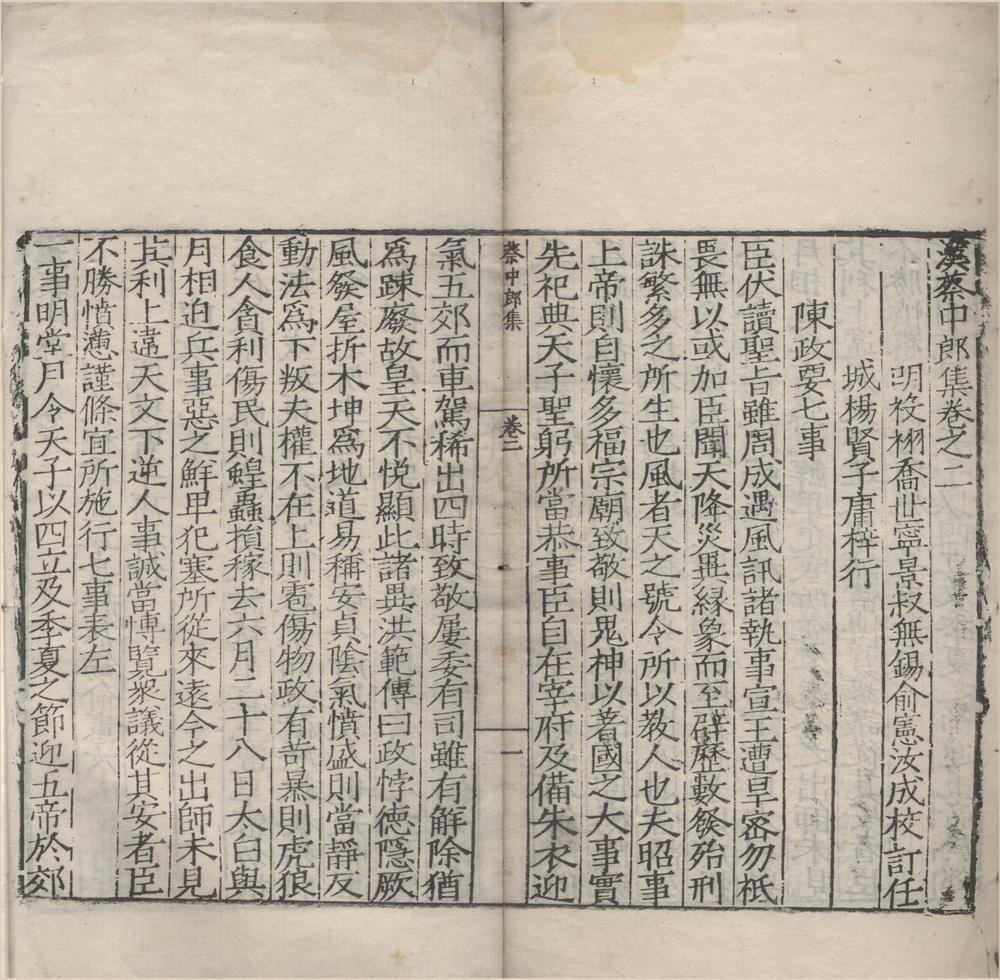 漢蔡中郎集卷之二
明祋栩喬世寧景叔無錫俞憲汝成校訂任
城楊賢子庸梓行
陳政要七事
臣伏讀聖旨雖周成遇風訊諸執事宣王遭旱密勿柢
畏無以或加臣聞天降災異緣象而至辟歷數發殆刑
誅繁多之所生也風者天之號令所以教人也夫昭事
上帝則自懷多福宗廟致敬則鬼神以著國之大事實
先祀典天子聖躬所當恭事臣自在宰府及備朱衣迎
蔡中郎集
卷二
一
氣五郊而車駕稀出四時致敬屢委有司雖有解除猶
為踈廢故皇天不悅顯此諸異洪範傳曰政悖德隱厥
風發屋折木坤為地道易稱安貞陰氣憤盛則當靜反
動法為下叛夫權不在上則雹傷物政有苛暴則虎狼
食人貪利傷民則蝗蟲損稼去六月二十八日太白與
月相迫兵事惡之鮮卑犯塞所從來遠今之出師未見
其利上違天文下逆人事誠當愽覽衆議從其安者臣
不勝憤懣謹條宜所施行七事表左
一事明堂月令天子以四立及季夏之節迎五帝於郊